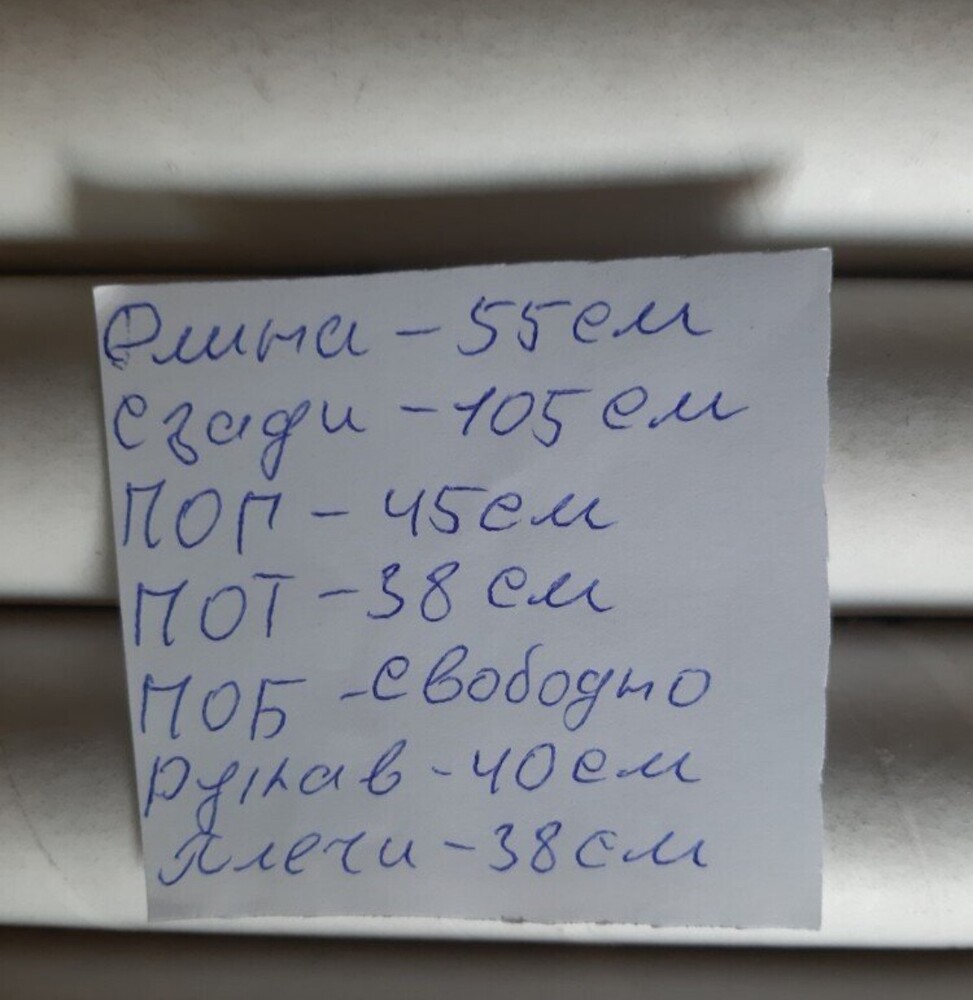 Длина - 55см
сзади - 105 см
ПОГ - 45см
ПОТ - 38 см
ПОБ - свободно
рукав - 40см
плечи - 38см